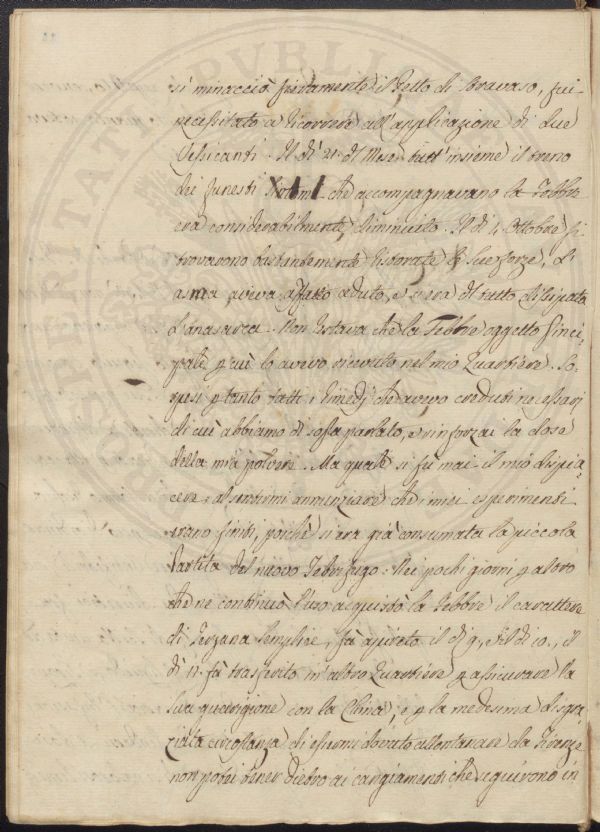 si minacciò fieramente il Petto di Travaso, fui
necessitato a ricorrere all'applicazione di due
Vessicanti. Il dì 21. del Mese tutt'insieme il treno
dei funesti che accompagnavano la Febbre
era considerabilmente diminuito. Il dì 4 Ottobre si
trovarono bastantemente ristorate le sue forze, l'
asma aveva affatto ceduto, e si era del tutto dissipata
l'anasarca. Non restava che la Febbre oggetto princi:
pale p cui lo avevo ricevuto nel mio Quartiere. So:
spesi p tanto tutti i rimedj che avevo creduti necessari
di cui abbiamo di sopra parlato, e rinforzai la dose
della mia polvere. Ma quale si fu mai il mio dispia:
cere al sentirmi annunziare che i miei esperimenti
erano finiti, poichè si era già consumata la piccola
Partita del nuovo Febrifugo. Nei pochi giorni p altro
che ne continuò l'uso acquistò la Febbre il carattere
di Terzana semplice, fù apireto il dì 9, e il dì 10., il
dì 11. fù trasferito in altro Quartiere p assicurare la
sua guarigione con la China, e p la medesima disgra:
ziata circostanza di essermi dovuto allontanare da Firenze
non potei tener dietro ai cangiamenti che seguirono in